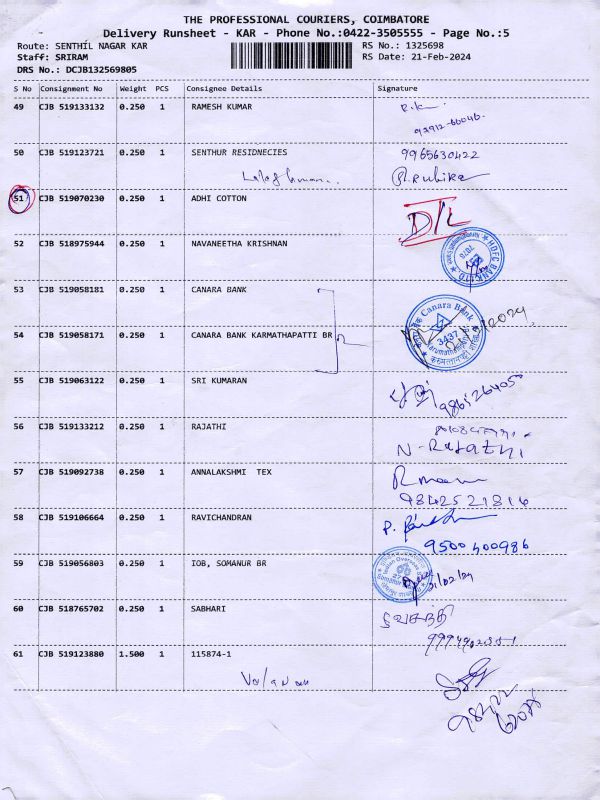 THE PROFESSIONAL COURIERS, COIMBATORE
Delivery Runsheet - KAR - Phone No.:0422-3505555 - Page No.:5
Route: SENTHIL NAGAR KAR RS No.: 1325698
Staff: SRIRAM RS Date: 21-Feb-2024
DRS No.: DCJB132569805
S No Consignment No Weight PCS Consignee Details Signature
49 CJB 519133132 0.250 1 RAMESH KUMAR
50 CJB 519123721 0.250 1 SENTHUR RESIDNECIES 9965630422
51 CJB 519070230 0.250 1 ADHI COTTON D/L
52 CJB 518975944 0.250 1 NAVANEETHA KRISHNAN
HDFC BANK LTD
53 CJB 519058181 0.250 1 CANARA BANK
Canara Bank
54 CJB 519058171 0.250 1 CANARA BANK KARMATHAPATTI BR
3437
55 CJB 519063122 0.250 1 SRI KUMARAN
56 CJB 519133212 0.250 1 RAJATHI
N-Rajathi
57 CJB 519092738 0.250 1 ANNALAKSHMI TEX
9842521814
58 CJB 519106664 0.250 1 RAVICHANDRAN
9500400986
59 CJB 519056803 0.250 1 IOB, SOMANUR BR
21/02/24
60 CJB 518765702 0.250 1 SABHARI
61 CJB 519123880 1.500 1 115874-1